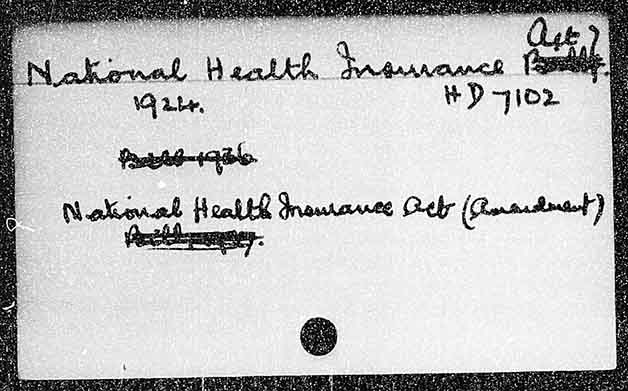 National Health Insurance Act
1924. HD 7102
Bill 1936
National Health Insurance Act (Amendment)